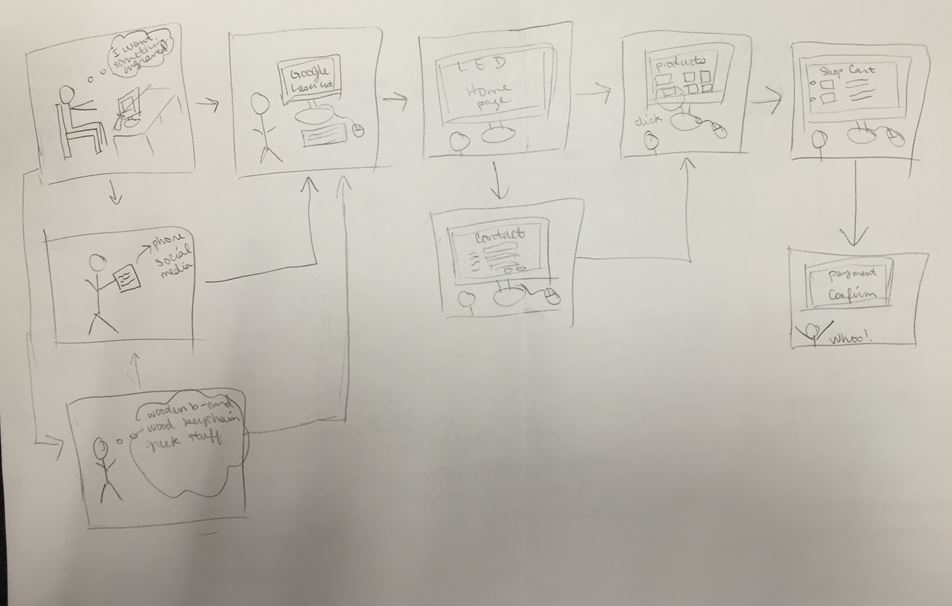 I want
something
engraved
Google
Laser Cut
LED
Home
page
products
click
Shop Cart
phone
social
media
Contact
payment
Confirm
Whoo!
wood keychain
stuff